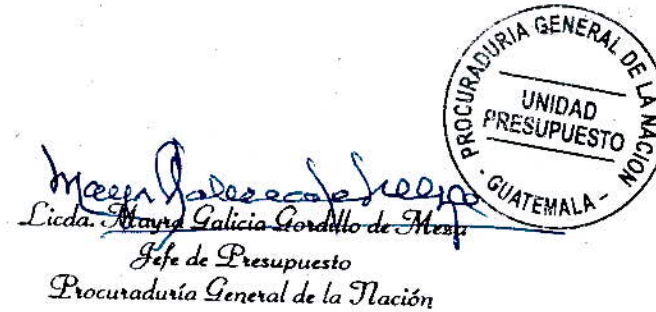 PROCURADURIA GENERAL DE LA NACION
UNIDAD
PRESUPUESTO
- GUATEMALA -
Licda. Mayra Galicia Gordillo de Meza
Jefe de Presupuesto
Procuraduría General de la Nación